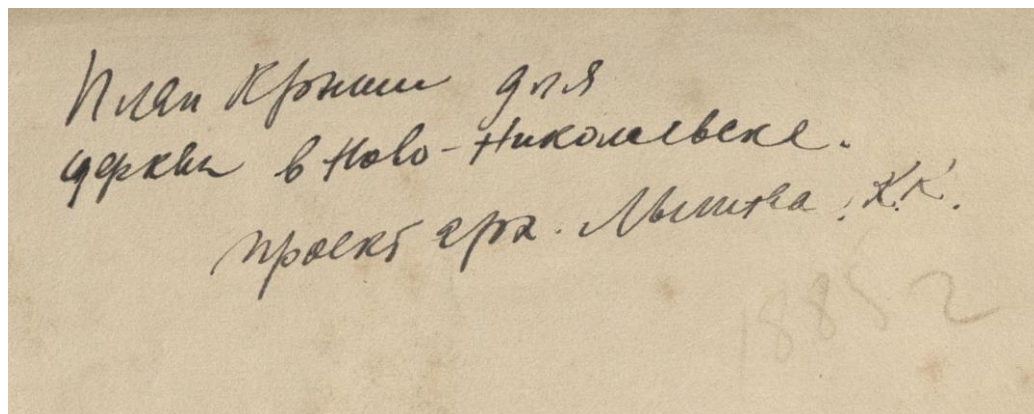 План крыши для
церкви в Ново-Николаевске.
проект арх. Лыгина К.К.
1885 г